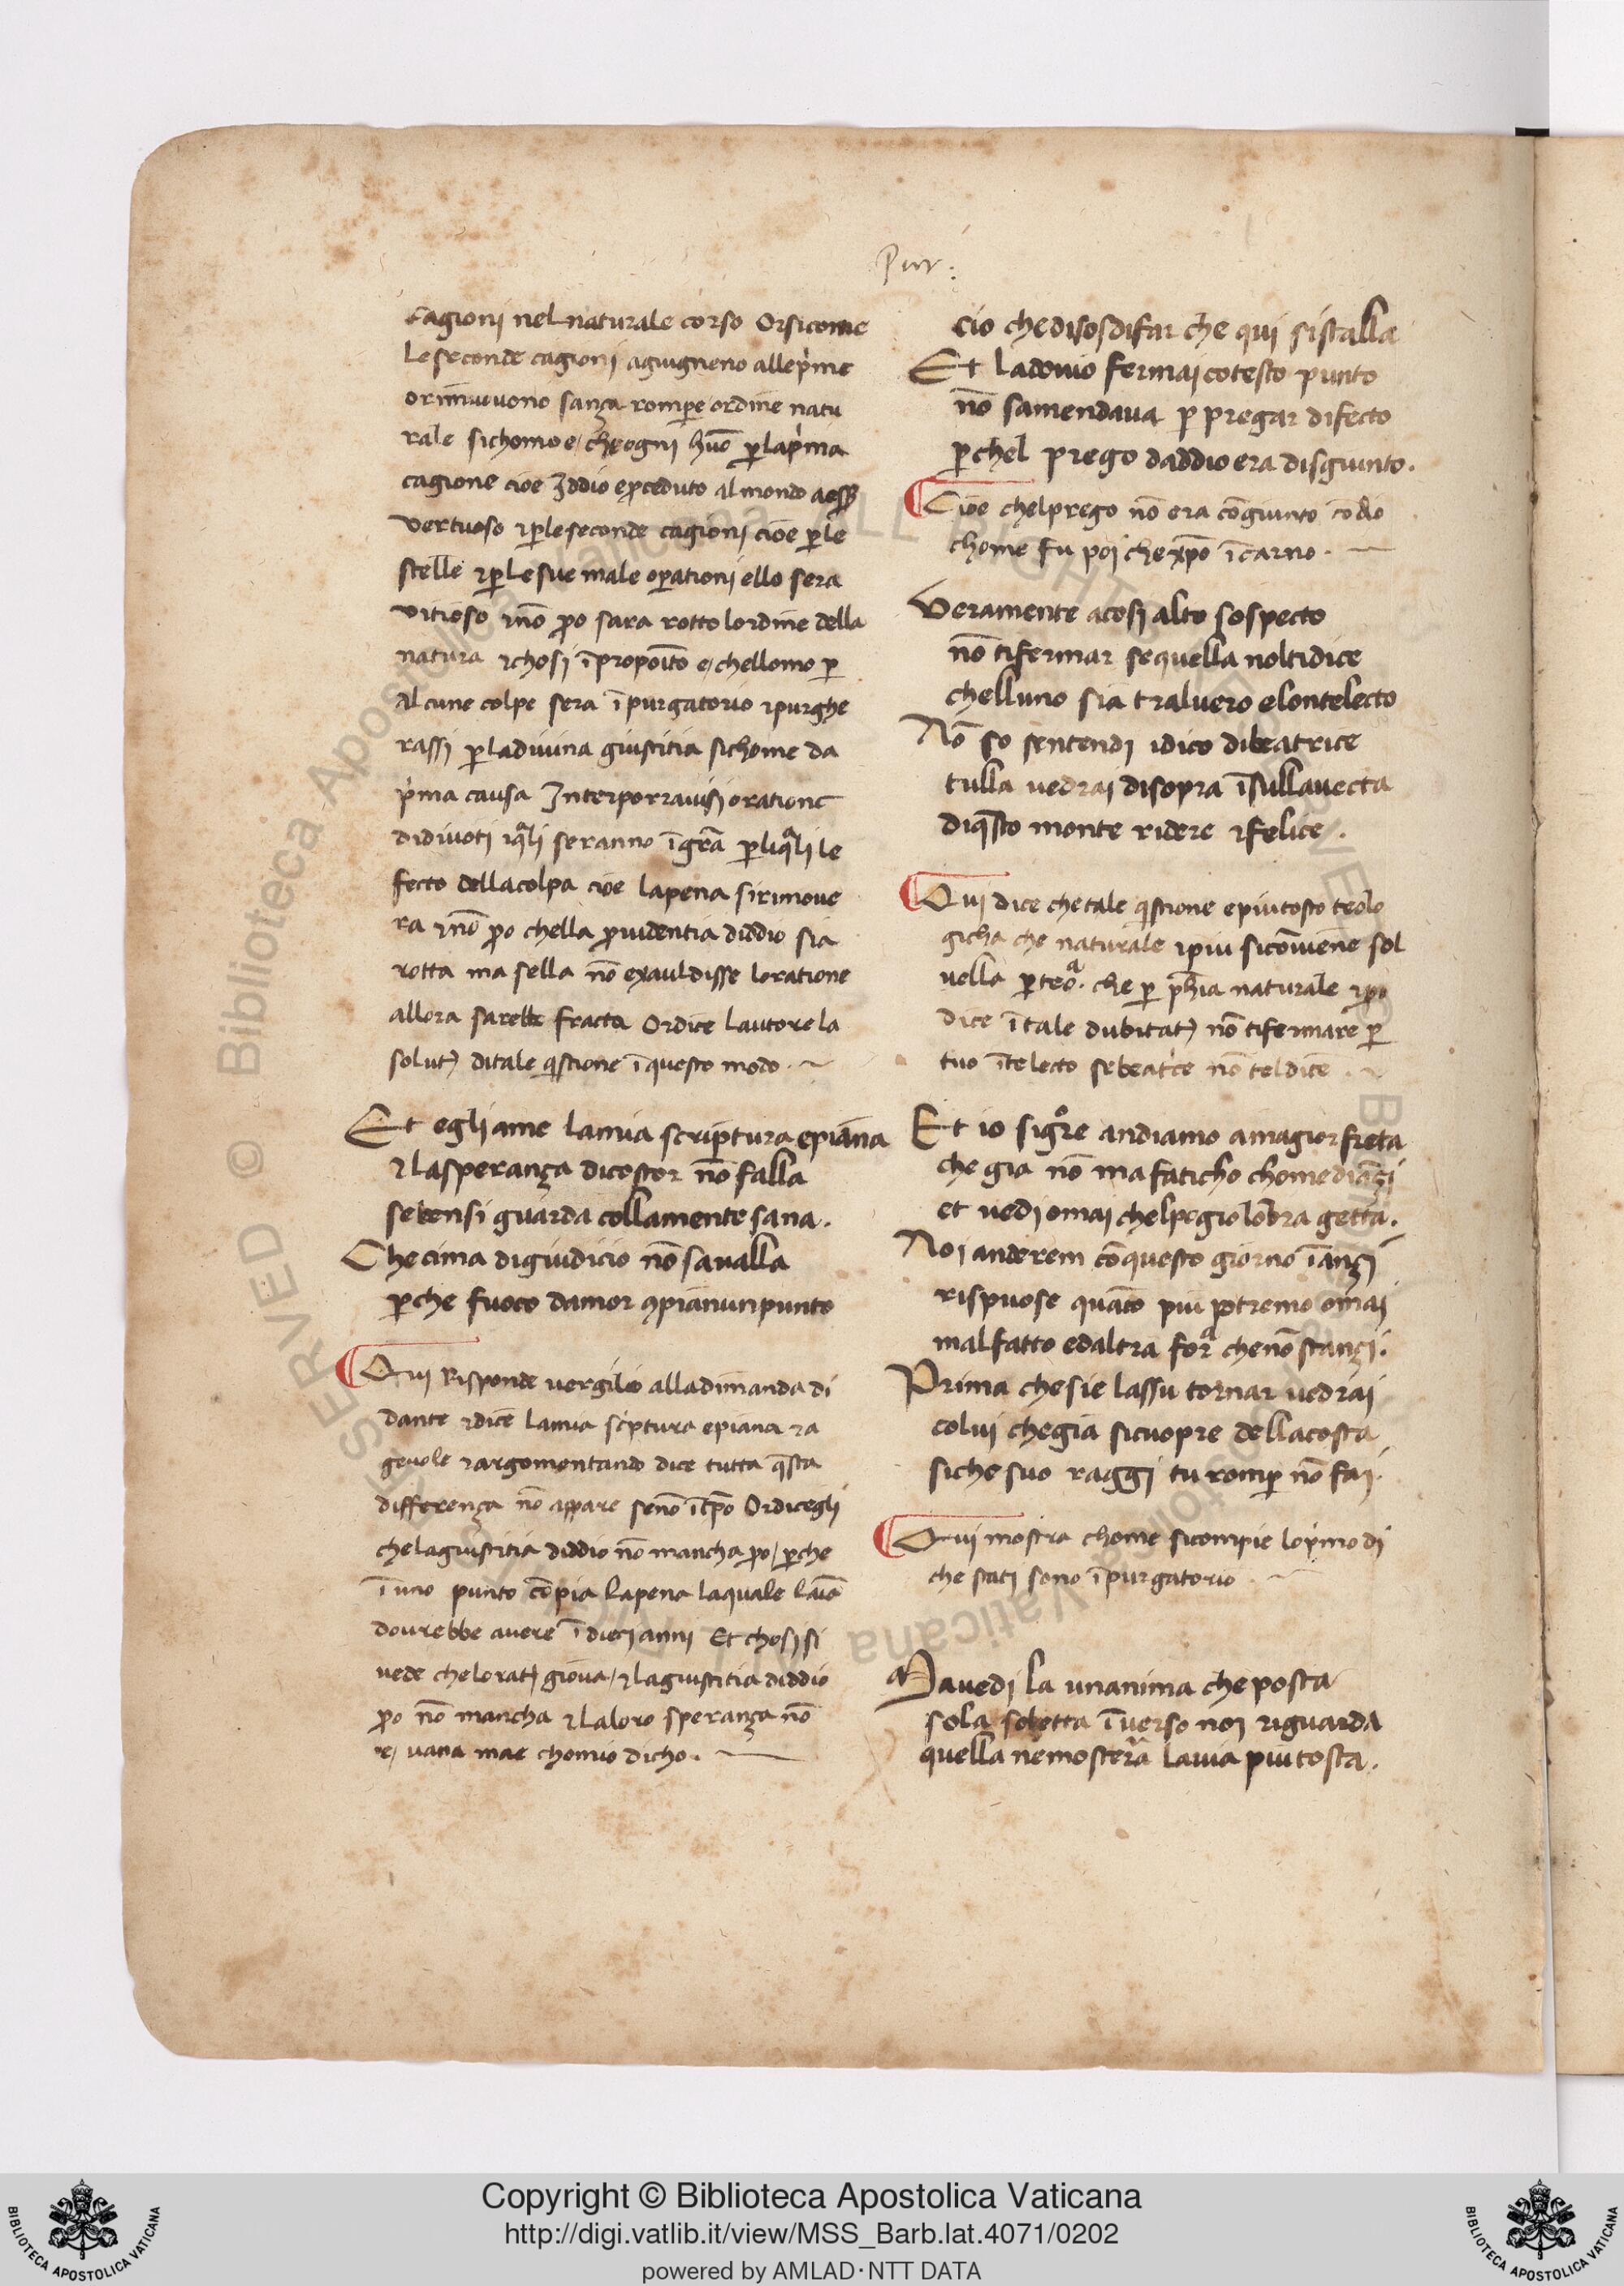 Pur:
cagionj nel naturale corso Orsicome
le seconde cagionj agiugneno alleprime
orimuevono sança rompere ordine natu
rale sichomo e/ che ognj huō ꝑ laprima
cagione cioe Iddio eproceduto almondo
vertuoso ⁊ ꝑ le seconde cagionj cioe ꝑ le
stelle ⁊ ꝑ le sue male oꝑationj ello sera
vitioso ⁊nō ꝑo sara rotto lordine della
natura ⁊chosj īpropoīto e/ chellomo ꝑ
alcune colpe sera ī purgatorio ⁊purghe
rassj ꝑ ladiuina giustitia sichome da
prima causa Interporrauisj oratione
didiuotj iqalj seranno īgrā ꝑ liqali le
fecto dellacolpa cioe lapena sirimoue
ra ⁊nō ꝑo chella prouidentia diddio sia
rotta ma sella nō exauldisse loratione
allora sarebbe fracta Ordice lautore la
solut) ditale q̄stione ī questo modo ·~
Et egli ame lamia scriptura epiana
⁊lasperança dicostor nō falla
sebensi guarda collamente sana.
Che cima digiudicio nō saualla
ꝑche fuoco damor cpianunpunto
Qui Risponde vergilio alladimanda di
dante ⁊dice lamia scriptura epiana ⁊a
geuole ⁊argomentando dice tutta q̄sta
differença nō appare senō Ordiceglj
che lagiustitia diddio nō mancha ꝑo/ ꝑche
ī uno punto cōpia lapena laquale
dourebbe auere ī diecj annj Et chosj si
uede che lorat) gioua/ ⁊lagiustitia diddio
ꝑo nō mancha ⁊laloro sperança nō
e/ uana mae chomio dicho. —
cio chedisosdifar che quj sistalla
Et ladouio fermaj cotesto punto
nō samendaua ꝑ pregar difecto
ꝑchel prego daddio era disgiunto.
Cioe chelprego nō era cōgiunto cōdio
chome fu poj che xp̄o īcarno. —
Veramente acosj alto sospecto
nō tifermar sequella noltidice
chelluno sia traluero elontelecto
Nō so sentendj idico dibeatrice
tulla uedraj disopra īsullauecta
diq̄sto monte ridere ⁊felice.
Quj dice chetale q̄stione epiutosto teolo
gicha che naturale ⁊piu sicōuiene sol
uella ꝑ teoa. che ꝑ phīa naturale ⁊ꝑo
dice ītale dubitat) nō tifermare ꝑ
tuo ītelecto sebeatrice nō teldice ·~
Et io sigre andiamo amagior freta
che gia nō mafaticho chomediāçi
et uedj omaj chelpogio lōbra getta.
Noi anderem cōquesto giorno īançi
rispuose quāto piu potremo omaj
malfatto edaltra fora chenō stançi.
Prima chesie lassu tornar uedraj
coluj chegia sicuopre dellacosta
siche suo raggj tu romper nō faj.
Quj mostra chome sicompie loprimo dj
che statj sono ī purgatorio —
Mauedj la unanima che posta
sola soletta īuerso noj riguarda
quella nemosterra lauia piutosta.
© Biblioteca Apostolica Vaticana ALL RIGHTS RESERVED
Copyright © Biblioteca Apostolica Vaticana
http://digi.vatlib.it/view/MSS_Barb.lat.4071/0202
powered by AMLAD·NTT DATA
BIBLIOTECA APOSTOLICA VATICANA
BIBLIOTECA APOSTOLICA VATICANA